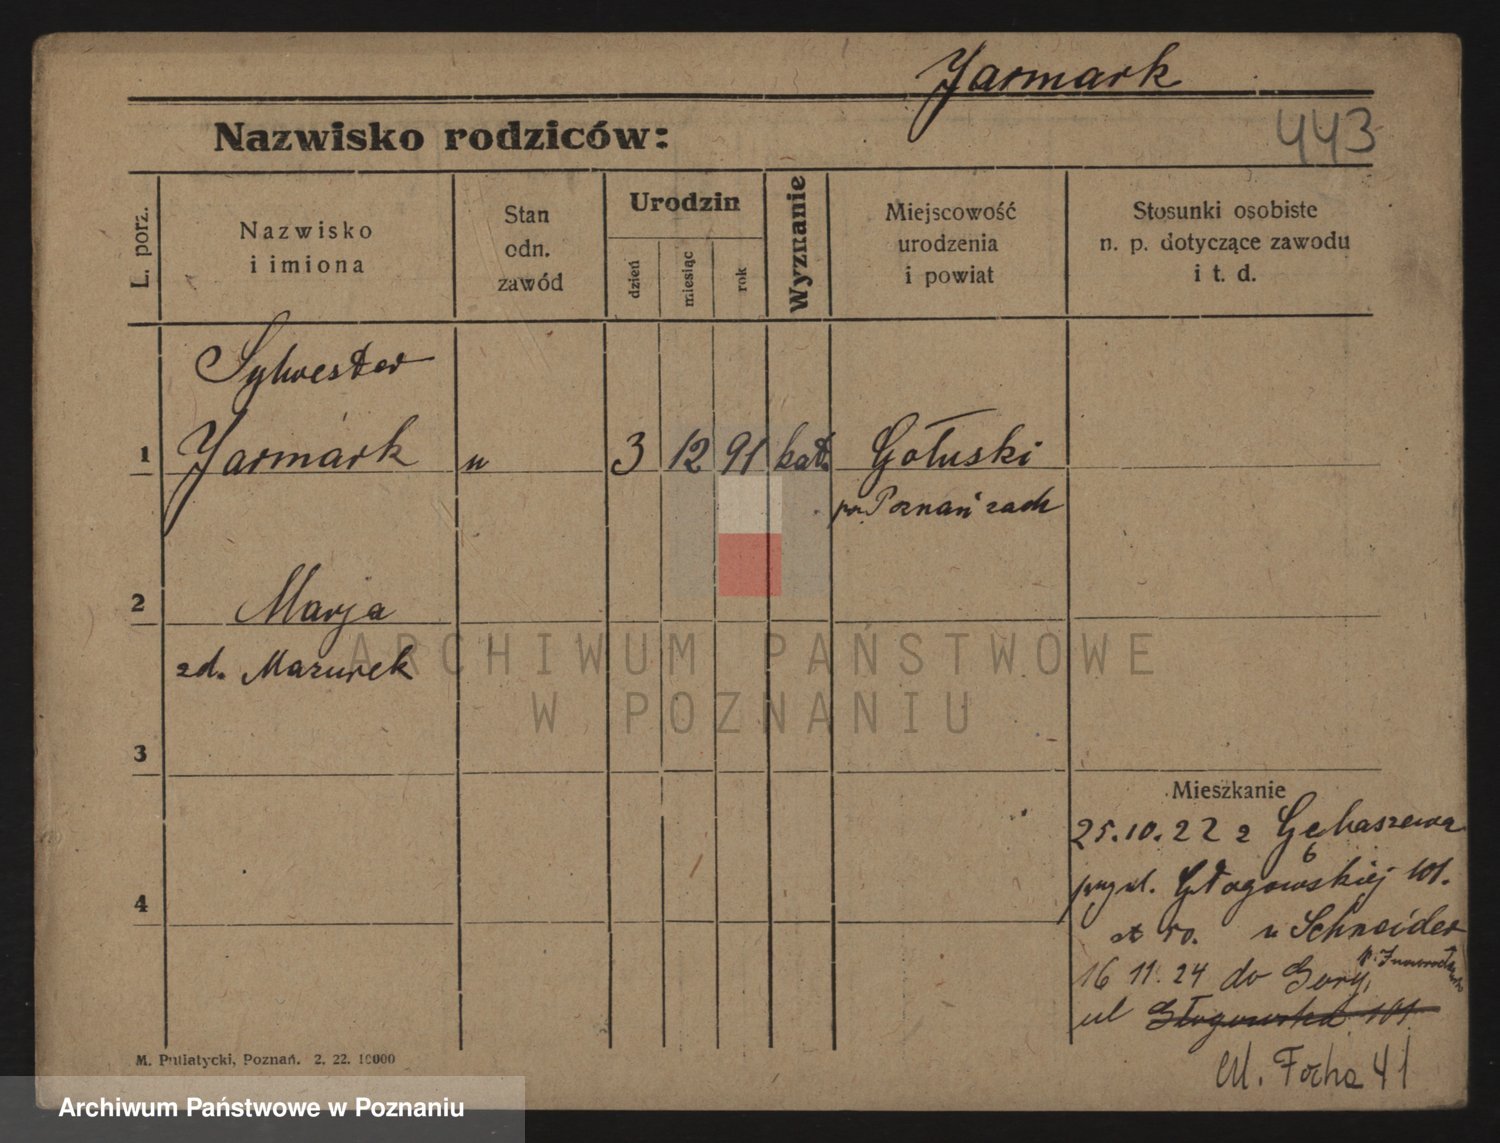 Yarmark
443
Nazwisko rodziców:
L. porz.
Nazwisko
i imiona
Stan
odn.
zawód
Urodzin
dzień
miesiąc
rok
Wyznanie
Miejscowość
urodzenia
i powiat
Stosunki osobiste
n. p. dotyczące zawodu
i t. d.
Sylwester
1 Yarmark u 3 12 91 kat. Gołuski
pow. Poznań zach
2 Marja
zd. Mazurek
ARCHIWUM PAŃSTWOWE
W POZNANIU
3
Mieszkanie
25.10.22 z
6
przy ul. Głogowskiej 101.
4
u Schneider
16 11. 24 do Gory,
ul Głogowska 101
ul. Focha 41
M. Putiatycki, Poznań. 2. 22. 10000
Archiwum Państwowe w Poznaniu